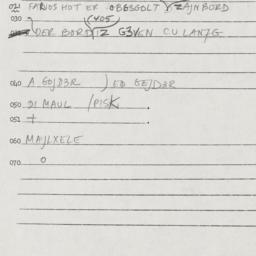 021 FAR VOS HOT ER OBGSGOLT ZAJN BORD
030 (405)
DER BORD IZ G3VEN CU LANJG
040 A GOJD3R ) EO GEJD3R
050 DI MAUL /PISK
051 +
060 MAJLXELE
070 O